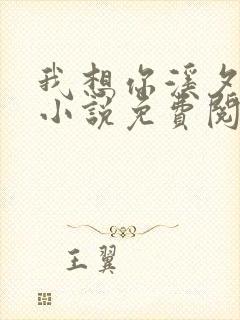 我想你溪夕
小说免費閱
王翼